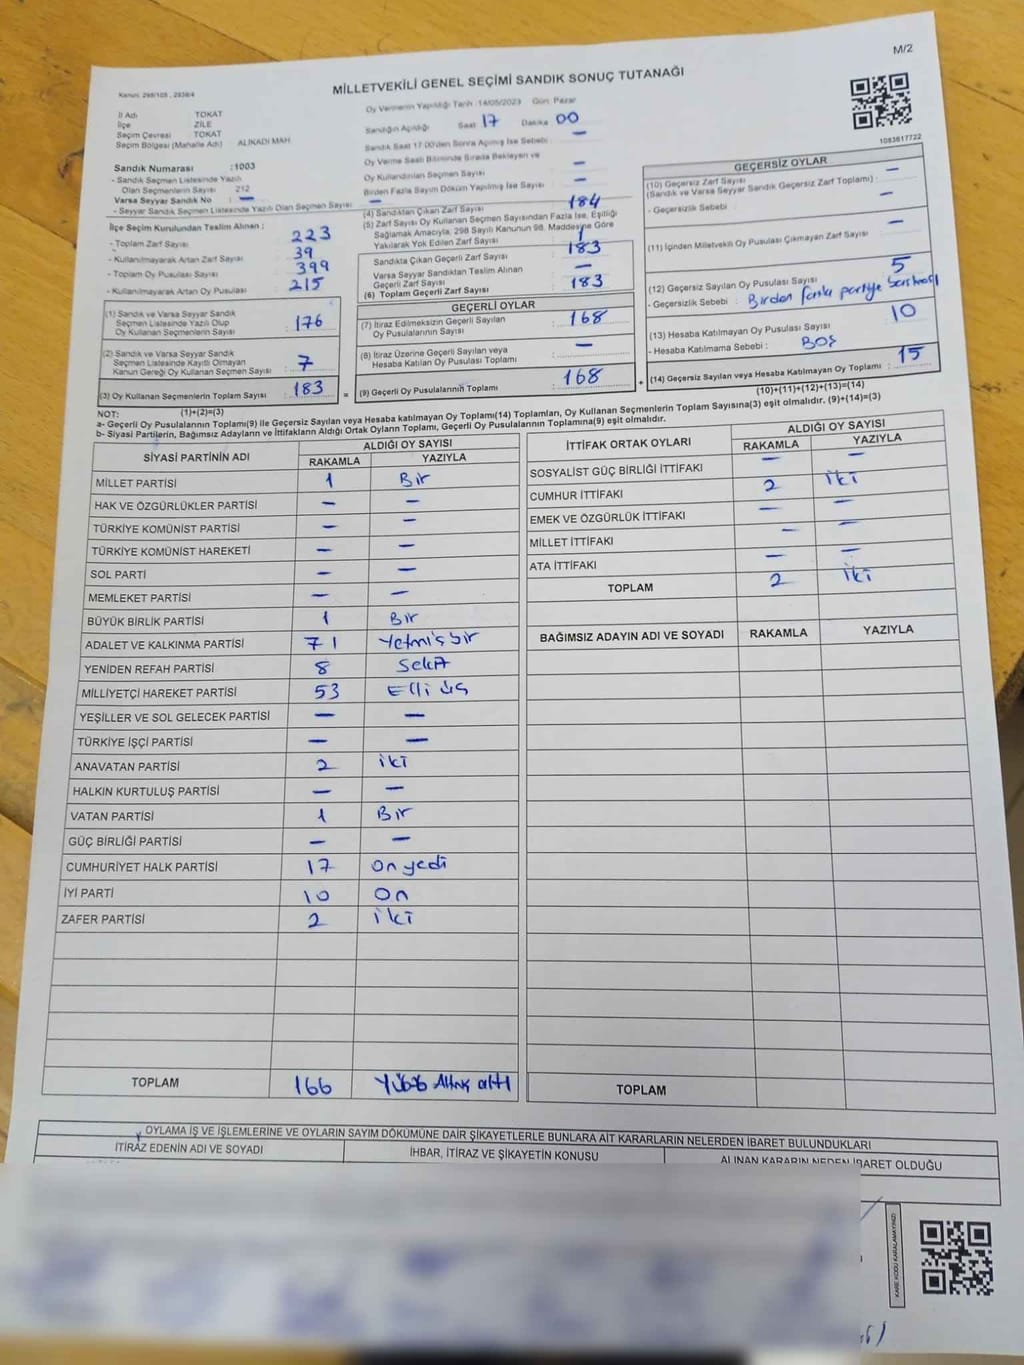 M/2
MİLLETVEKİLİ GENEL SEÇİMİ SANDIK SONUÇ TUTANAĞI
Kanun: 298/105 , 2839/4
Oy Vermenin Yapıldığı Tarih :14/05/2023 Gün: Pazar
İl Adı TOKAT
İlçe ZİLE
Seçim Çevresi TOKAT
Seçim Bölgesi (Mahalle Adı) ALİKADI MAH
Sandığın Açıldığı Saat 17 Dakika 00
Sandık Saat 17:00'den Sonra Açılmış İse Sebebi : —
Oy Verme Saati Bitiminde Sırada Bekleyen ve
Oy Kullandırılan Seçmen Sayısı —
Birden Fazla Sayım Döküm Yapılmış İse Sayısı —
1083617722
Sandık Numarası :1003
- Sandık Seçmen Listesinde Yazılı
Olan Seçmenlerin Sayısı 212
Varsa Seyyar Sandık No : —
- Seyyar Sandık Seçmen Listesinde Yazılı Olan Seçmen Sayısı —
İlçe Seçim Kurulundan Teslim Alınan ;
- Toplam Zarf Sayısı 223
- Kullanılmayarak Artan Zarf Sayısı 39
- Toplam Oy Pusulası Sayısı 399
- Kullanılmayarak Artan Oy Pusulası 215
(1) Sandık ve Varsa Seyyar Sandık
Seçmen Listesinde Yazılı Olup
Oy Kullanan Seçmenlerin Sayısı : 176
(2) Sandık ve Varsa Seyyar Sandık
Seçmen Listesinde Kayıtlı Olmayan
Kanun Gereği Oy Kullanan Seçmen Sayısı : 7
(3) Oy Kullanan Seçmenlerin Toplam Sayısı : 183 =
(4) Sandıktan Çıkan Zarf Sayısı 184
(5) Zarf Sayısı Oy Kullanan Seçmen Sayısından Fazla İse, Eşitliği
Sağlamak Amacıyla, 298 Sayılı Kanunun 98. Maddesine Göre
Yakılarak Yok Edilen Zarf Sayısı 1
Sandıkta Çıkan Geçerli Zarf Sayısı 183
Varsa Seyyar Sandıktan Teslim Alınan
Geçerli Zarf Sayısı —
(6) Toplam Geçerli Zarf Sayısı 183
GEÇERLİ OYLAR
(7) İtiraz Edilmeksizin Geçerli Sayılan
Oy Pusulalarının Sayısı : 168
(8) İtiraz Üzerine Geçerli Sayılan veya
Hesaba Katılan Oy Pusulası Toplamı : —
(9) Geçerli Oy Pusulalarının Toplamı : 168 +
GEÇERSİZ OYLAR
(10) Geçersiz Zarf Sayısı
(Sandık ve Varsa Seyyar Sandık Geçersiz Zarf Toplamı) : —
- Geçersizlik Sebebi : —
(11) İçinden Milletvekili Oy Pusulası Çıkmayan Zarf Sayısı —
(12) Geçersiz Sayılan Oy Pusulası Sayısı 5
- Geçersizlik Sebebi : Birden fazla partiye basılması
(13) Hesaba Katılmayan Oy Pusulası Sayısı 10
- Hesaba Katılmama Sebebi : Boş
(14) Geçersiz Sayılan veya Hesaba Katılmayan Oy Toplamı : 15
(1)+(2)=(3)
(10)+(11)+(12)+(13)=(14)
NOT:
a- Geçerli Oy Pusulalarının Toplamı(9) ile Geçersiz Sayılan veya Hesaba katılmayan Oy Toplamı(14) Toplamları, Oy Kullanan Seçmenlerin Toplam Sayısına(3) eşit olmalıdır. (9)+(14)=(3)
b- Siyasi Partilerin, Bağımsız Adayların ve İttifakların Aldığı Ortak Oyların Toplamı, Geçerli Oy Pusulalarının Toplamına(9) eşit olmalıdır.
SİYASİ PARTİNİN ADI ALDIĞI OY SAYISI
RAKAMLA YAZIYLA
MİLLET PARTİSİ 1 Bir
HAK VE ÖZGÜRLÜKLER PARTİSİ — —
TÜRKİYE KOMÜNİST PARTİSİ — —
TÜRKİYE KOMÜNİST HAREKETİ — —
SOL PARTİ — —
MEMLEKET PARTİSİ — —
BÜYÜK BİRLİK PARTİSİ 1 Bir
ADALET VE KALKINMA PARTİSİ 71 Yetmiş bir
YENİDEN REFAH PARTİSİ 8 Sekiz
MİLLİYETÇİ HAREKET PARTİSİ 53 Elli üç
YEŞİLLER VE SOL GELECEK PARTİSİ — —
TÜRKİYE İŞÇİ PARTİSİ — —
ANAVATAN PARTİSİ 2 iki
HALKIN KURTULUŞ PARTİSİ — —
VATAN PARTİSİ 1 Bir
GÜÇ BİRLİĞİ PARTİSİ — —
CUMHURİYET HALK PARTİSİ 17 On yedi
İYİ PARTİ 10 On
ZAFER PARTİSİ 2 iki
TOPLAM 166 Yüz Altmış altı
İTTİFAK ORTAK OYLARI ALDIĞI OY SAYISI
RAKAMLA YAZIYLA
SOSYALİST GÜÇ BİRLİĞİ İTTİFAKI — —
CUMHUR İTTİFAKI 2 iki
EMEK VE ÖZGÜRLÜK İTTİFAKI — —
MİLLET İTTİFAKI — —
ATA İTTİFAKI — —
TOPLAM 2 iki
BAĞIMSIZ ADAYIN ADI VE SOYADI RAKAMLA YAZIYLA
TOPLAM
OYLAMA İŞ VE İŞLEMLERİNE VE OYLARIN SAYIM DÖKÜMÜNE DAİR ŞİKAYETLERLE BUNLARA AİT KARARLARIN NELERDEN İBARET BULUNDUKLARI
İTİRAZ EDENİN ADI VE SOYADI İHBAR, İTİRAZ VE ŞİKAYETİN KONUSU ALINAN KARARIN NEDEN İBARET OLDUĞU
KARE KODU KARALAMAYINIZ!